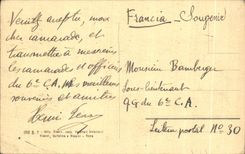 Francia - Songerie
Veuillez accepter, mon
cher camarade, et
transmettre à messieurs
les camarades et officiers
du 6e C.A. mes meilleurs
souvenirs et amitiés
Monsieur Bamberger
sous-lieutenant
QG du 6e C.A.
Secteur postal No 30